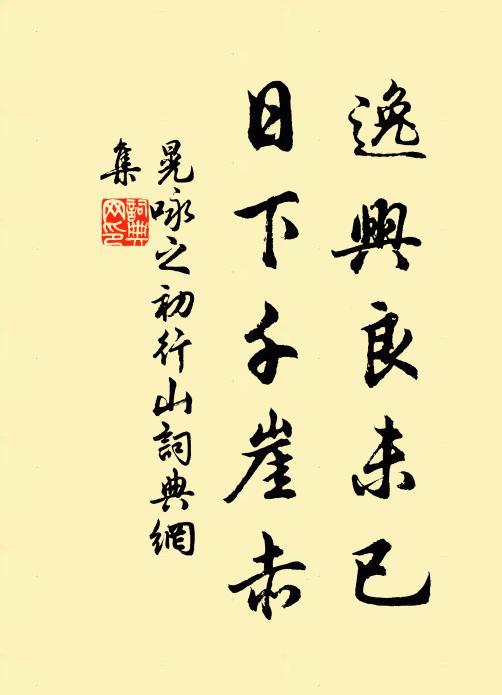 逸興良未已
日下千崖赤
晃咏之初行山詞典網
集
詞典網印